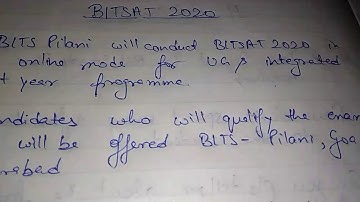 BITSAT 2020
BITS Pilani will conduct BITSAT 2020 in
online mode for UG & integrated
year programme
ndidates who will qualify the exam
will be offered BITS - Pilani, Goa
rabad